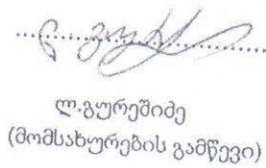 ლ.გურეშიძე
(მომსახურების გამწევი)